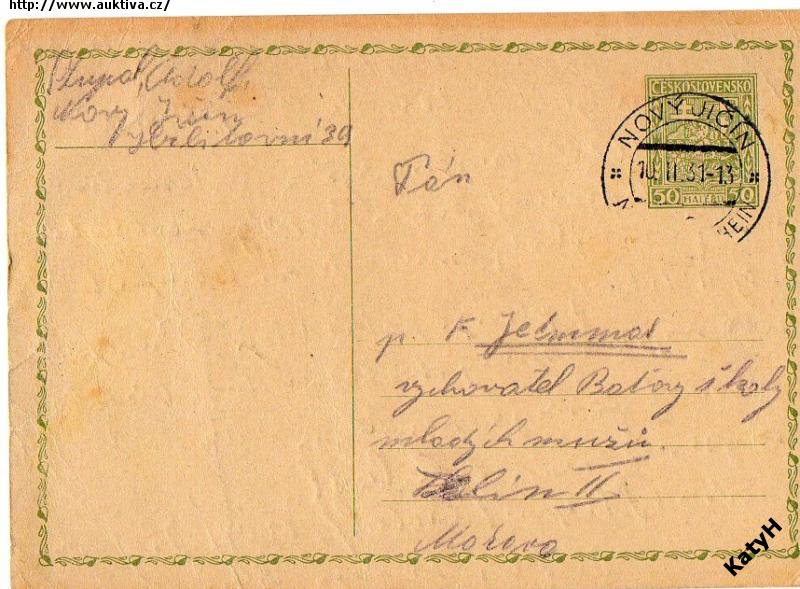 http://www.auktiva.cz/
Adolf,
Nový Jičín
39
ČESKOSLOVENSKO
NOVÝ JIČÍN
10.II.31-13
50 HALÉŘŮ 50
HEIN
Pán
p. F.
vychovatel Baťovy školy
mladých mužů.
Zlín II.
Morava
KatyH